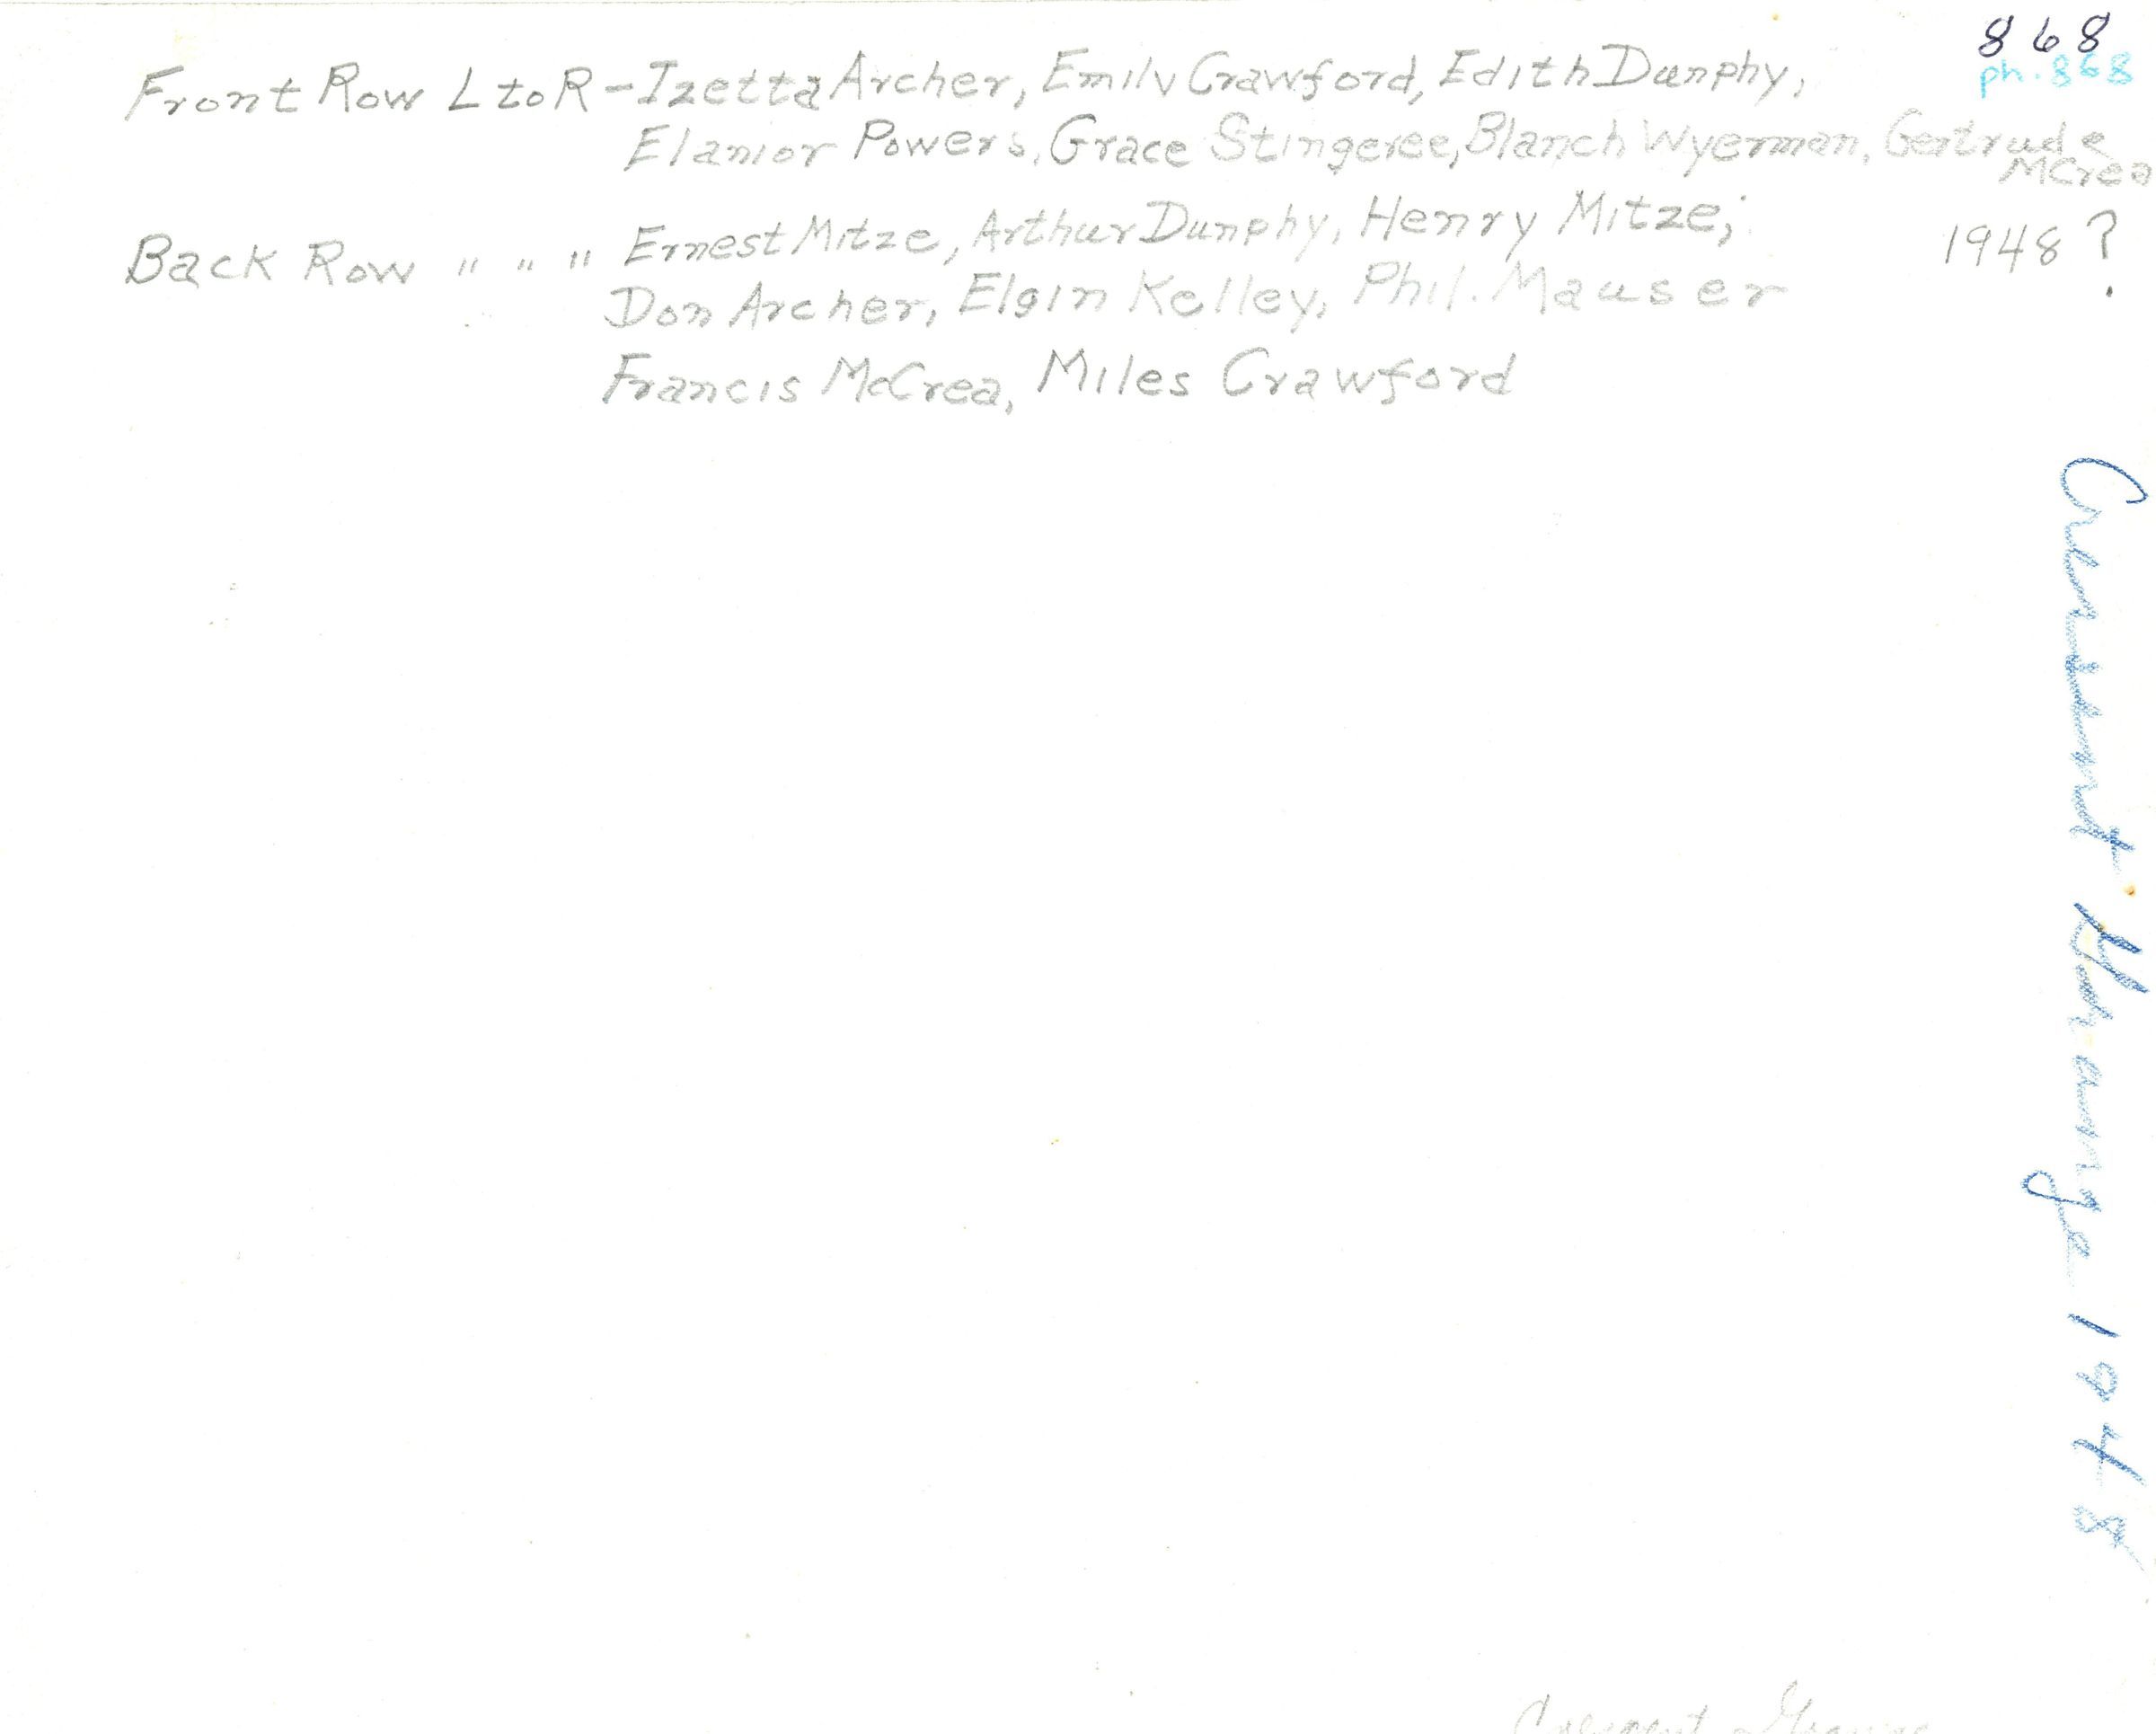 868
ph. 868
Front Row L to R - Izetta Archer, Emily Crawford, Edith Dunphy,
Elanior Powers, Grace Stingeree, Blanch Wyerman, Gertrude
McCrea
Back Row " " " Ernest Mitze, Arthur Dunphy, Henry Mitze;
1948?
Don Archer, Elgin Kelley, Phil. Mauser
Francis McCrea, Miles Crawford
Crescent Grange 1948
Crescent Grange